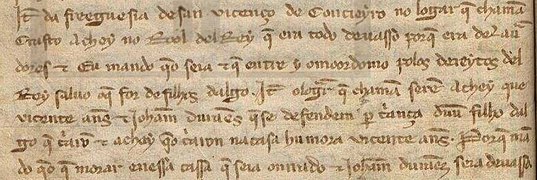 It da freeguesia de san vicenço de Concieyro no logar q̃ chamã
Crasto Achey no Rool del Rey q̃ era todo devasso porq̃ era de lau
dores ⁊ Eu mando q̃o seia ⁊ q̃ entre y omoordomo polos dereytos del
Rey saluo oq̃ for de filhos dalgo. It ologar q̃ chamã Achey que
vicente anẽs ⁊ Johañ q̃se defendem p dũu filho dal
go q̃ ⁊ achey q̃o na casa hu mora vicente anẽs. Porq̃ mã
do q̃o q̃ morar enessa cassa q̃ seia onrrado ⁊ Johañ sera devasso